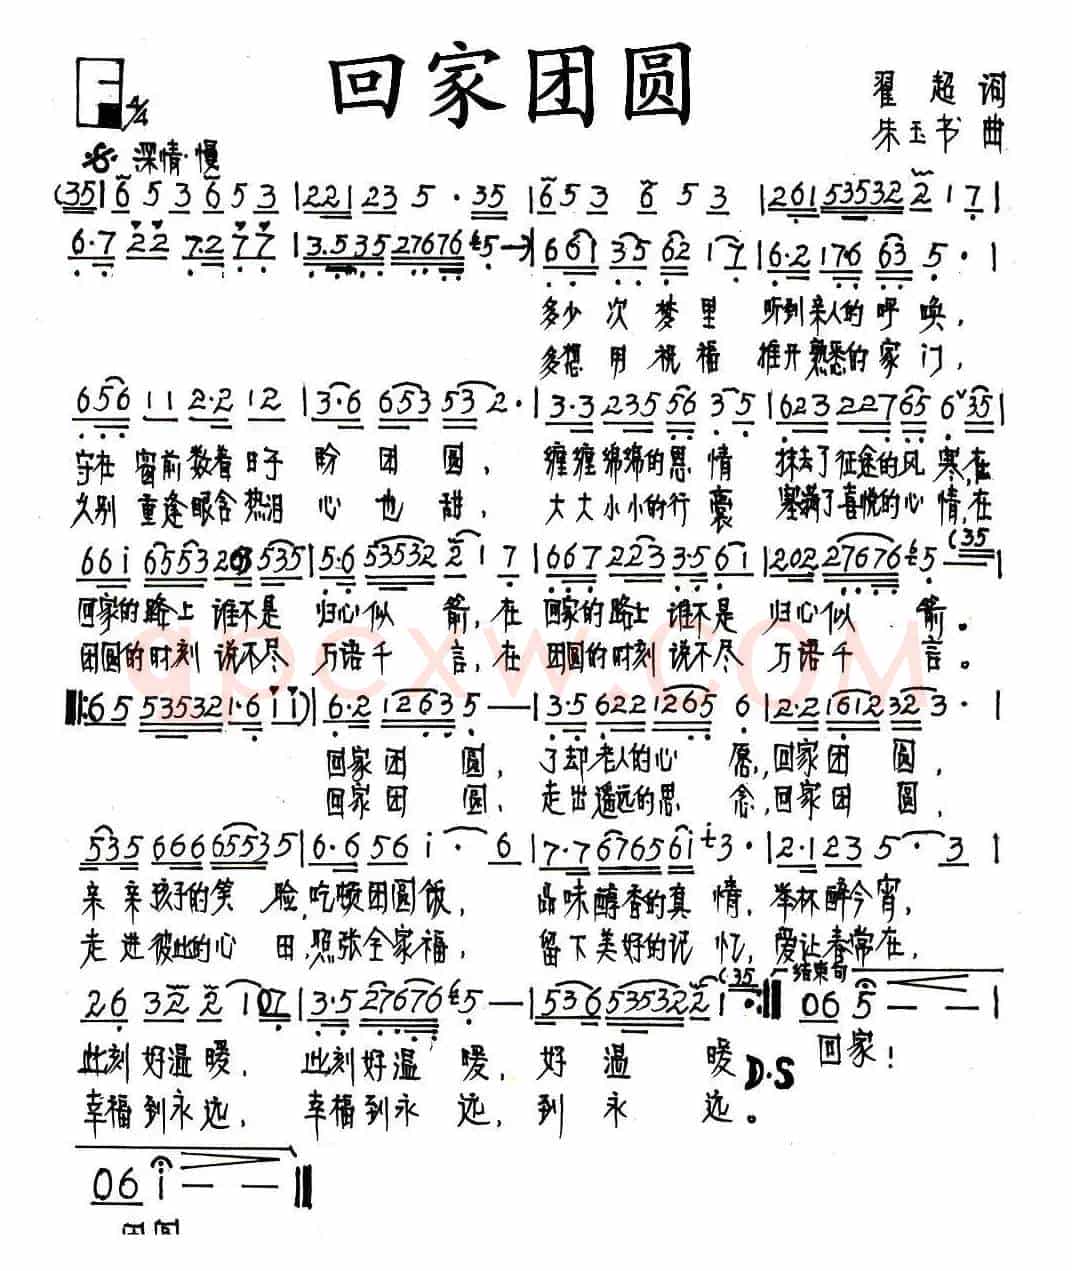 回家团圆
F 4/4
翟超 词
朱玉书 曲
深情·慢
(35| 6 5 3 6 5 3 |221 23 5 · 35 |653 6 5 3 |261 53532 2 1 7 |
6·7 22 7·2 77 |3·535 27676 5 —) |661 35 62 17 |6·2 176 63 5 · |
多少次梦里 听到亲人的呼唤,
多想用祝福 推开熟悉的家门,
656 11 2·2 12 |3·6 653 53 2· |3·3 235 56 3·5 |623 227 65 6 35|
守在窗前数着日子盼团圆, 缠缠绵绵的思情 抹去了征途的风寒,在
久别重逢眼含热泪心也甜, 大大小小的行囊 塞满了喜悦的心情,在
661 6553 203 535 |5·6 53532 2 1 7 |667 223 3·5 61 |202 27676 5 — (35
回家的路上谁不是归心似箭,在回家的路上谁不是归心似箭。
团圆的时刻说不尽万语千言,在团圆的时刻说不尽万语千言。
‖:65 53532 1·6 11) |6·2 1263 5 — |3·5 622 1265 6 |2·2 161232 3 · |
回家团圆, 了却老人的心愿,回家团圆,
回家团圆, 走出遥远的思念,回家团圆,
535 666 6553 5 |6·6 56 1 · 6 |7·7 676561 3 · |2·1 23 5 · 3 |
亲亲孩子的笑脸,吃顿团圆饭, 品味醇香的真情,举杯醉今宵,
走进彼此的心田,照张全家福, 留下美好的记忆,爱让春常在,
26 32 2 107 |3·5 27676 5 — |536 53532 2 1 · (35 :‖ 结束句 06 5 — — |
此刻好温暖, 此刻好温暖,好温暖 D·S 回家!
幸福到永远, 幸福到永远,到永远。
06 1 — — ‖
团圆
gpcxw.COM